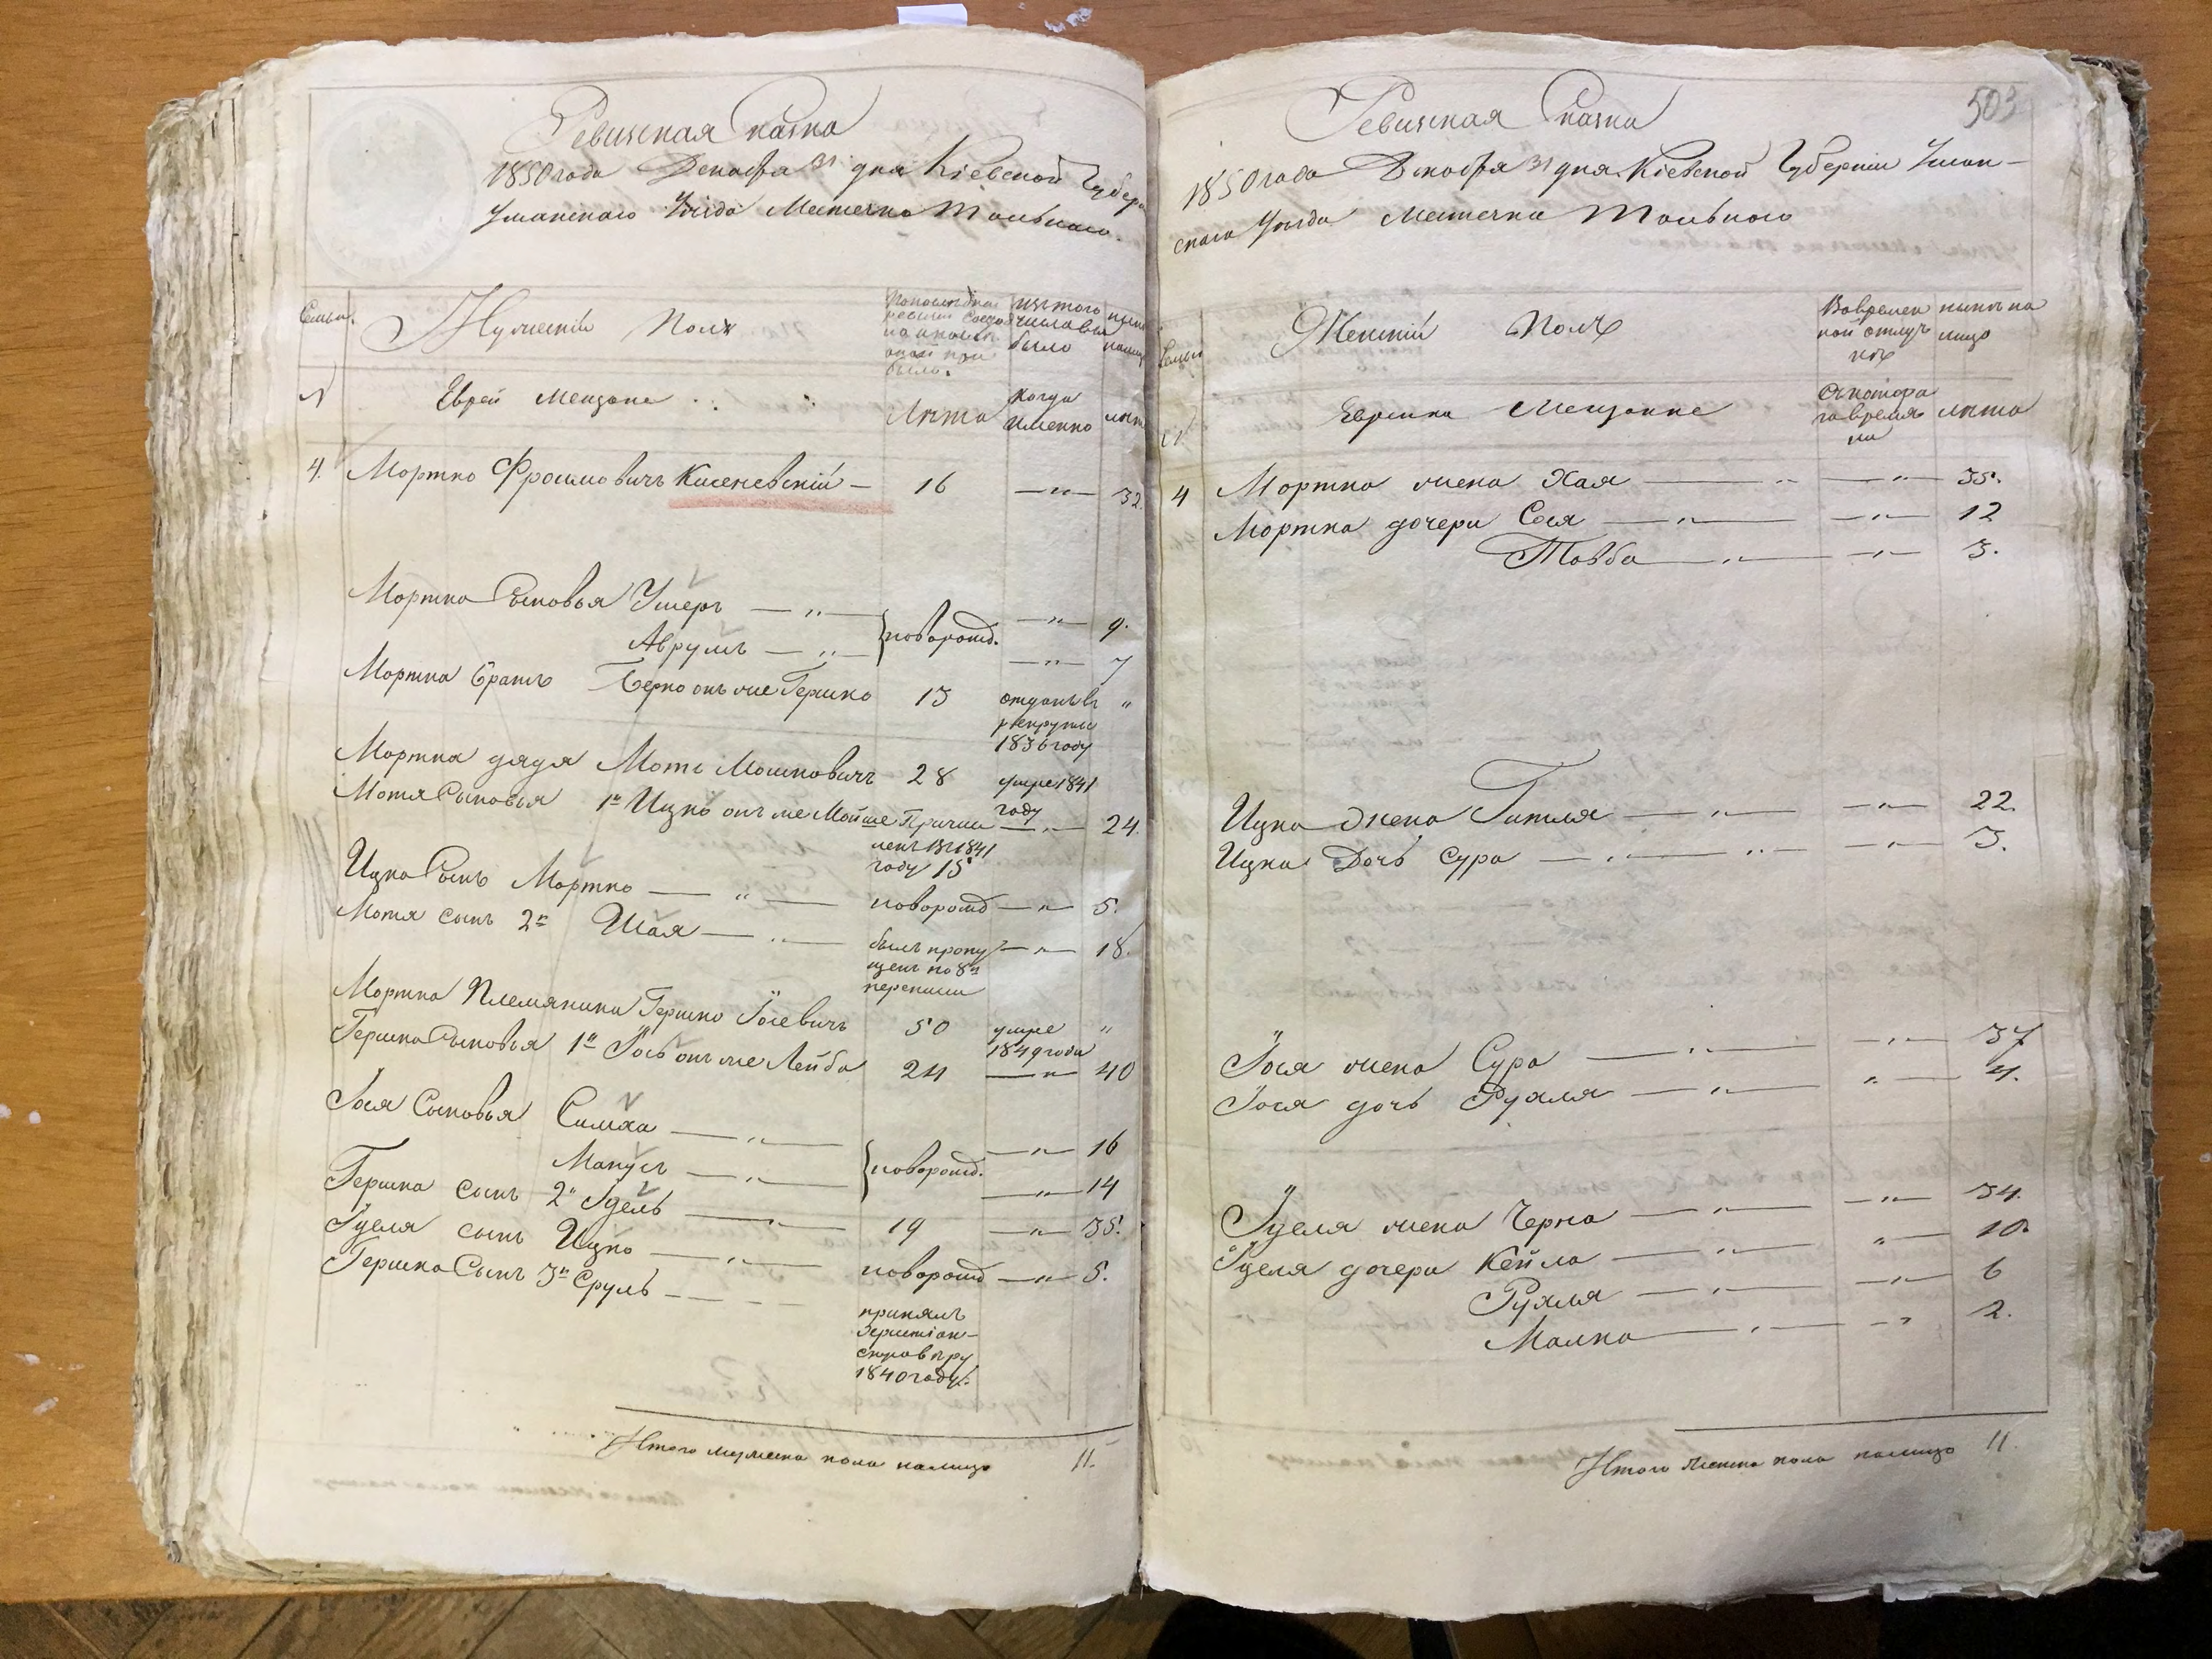 Ревизская Сказка
1850 года Декабря 31 дня Кіевской Губер
Уманского Уѣзда Местечка Тального.
Семьи. Мужескій Полъ
По последней ревизіи состояло и после оной прибыло. Изъ того числа выбыло ныне налицо
№ Еврей Мещане Лѣта Когда именно лѣта
4. Мортко Фроимовичъ Кисеневскій — 16 — „ — 32.
Мортка Сыновья Ушеръ — „ — новорожд. — „ — 9.
Аврумъ — „ — — „ — 7
Мортка братъ Берко онъ же Гершко 13 отданъ въ „
рекруты
1836 году
Мортка дядя Моть Мошковичъ 28 умре 1841
году
Мотя Сыновья 1й Ицко онъ же Мойше Причис — „ — 24.
ленъ въ 1841
году 15
Ицка Сынъ Мортко — „ — новорожд — „ — 5.
Мотя сынъ 2й Шая — „ — былъ пропу — „ — 18.
щенъ по 8й
переписи
Мортка Племянника Гершко Іосевичъ 50 умре „
1849 года
Гершка Сыновья 1й Іось онъ же Лейба 24 — „ — 40
Іося Сыновья Симха — „ — новорожд. — „ — 16
Манусъ — „ — — „ — 14
Гершка сынъ 2й Iдель — „ — 19 — „ — 35.
Іделя сынъ Ицко — „ — новорожд — „ — 5.
Гершка Сынъ 3й Сруль — — —
принялъ
Христіан-
скую веру
1840 году.
Итого мужеска пола налицо 11.
503
Ревизская Сказка
1850 года Декабря 31 дня Кіевской Губерніи Уман-
ского Уѣзда Местечка Тального
Семьи Женскій Полъ
Во времен ныне на
ной отлуч лицо
кѣ
№ Еврейки Мещанке
Съ котора лѣта
го време
ни
4 Мортка жена Хая — „ — „ — 35.
Мортка дочери Сося — „ — „ — 12
Товба — „ — „ — 3.
Ицка Жена Гитля — „ — „ — 22.
Ицка Дочь Сура — „ — „ — 3.
Іося жена Сура — „ — „ — 37
Іося дочь Рухля — „ — „ — 4.
Іделя жена Черна — „ — „ — 34.
Іделя дочери Кейла — „ — „ — 10.
Рухля — „ — „ — 6
Малка — „ — „ — 2.
Итого Женска пола налицо 11.